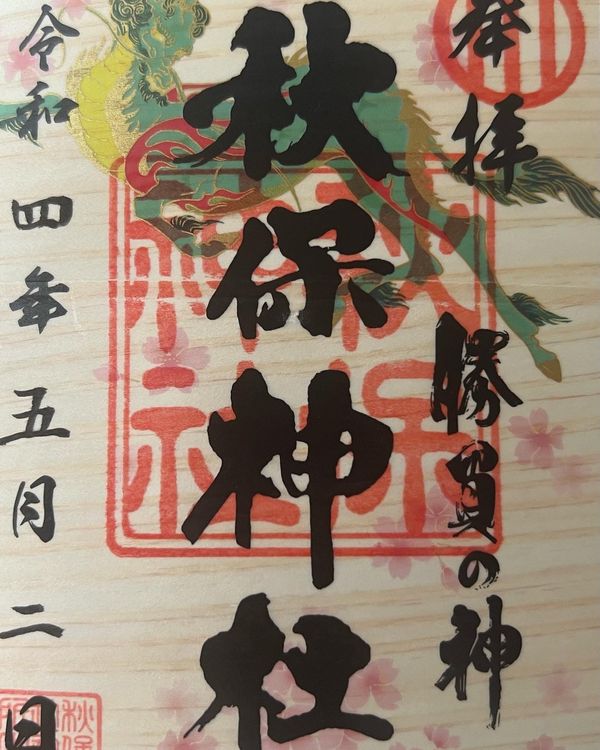 奉拝
勝負の神
秋保神社
秋保
神社
令和四年五月二日
秋保